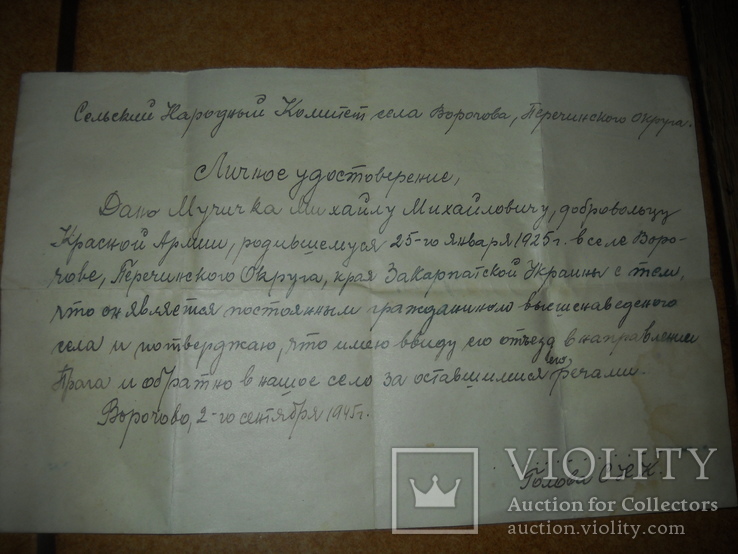 Сельский Народный Комитет села Ворочова, Перечинского Округа.
Личное удостоверение,
Дано Мучичка Михайлу Михайловичу, добровольцу
Красной Армии, родившемуся 25-го января 1925г. в селе Воро-
чове, Перечинского Округа, края Закарпатской Украины с тем,
что он является постоянным гражданином высшенаведеного
села и потверджаю, что имею ввиду его отъезд в направлении
Прага и обратно в нашое село за оставшимися его речами.
Ворочово, 2-го сентября 1945г.
Голова С.Н.К.
VIOLITY
Auction for Collectors
auction.violity.com